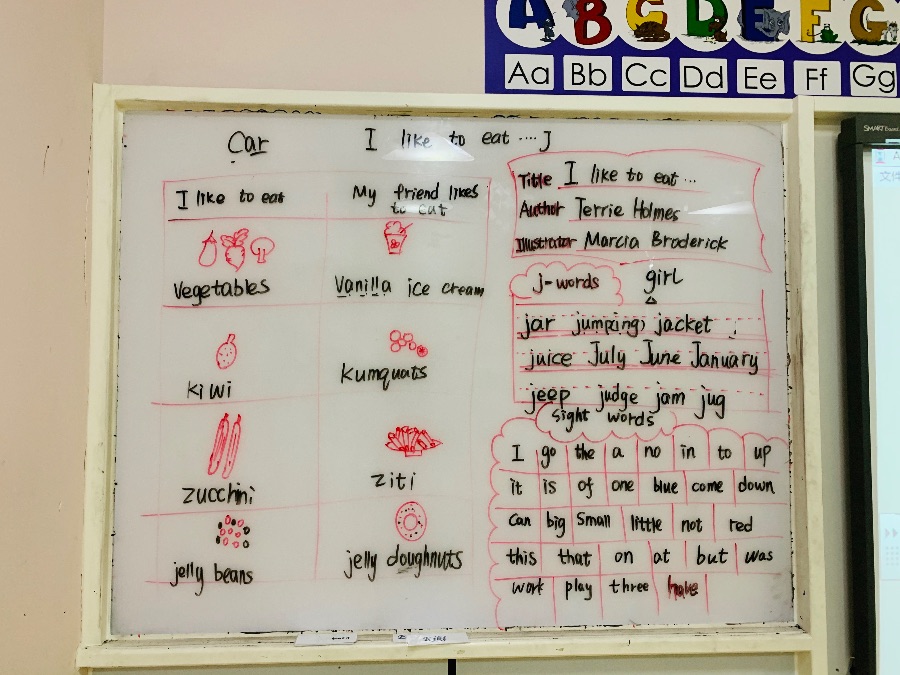 Aa Bb Cc Dd Ee Ff Gg
A B C D E F G
SMART Board
Car
I like to eat .... J
I like to eat
My friend likes
to eat
Vegetables
Vanilla ice cream
kiwi
kumquats
zucchini
ziti
jelly beans
jelly doughnuts
Title I like to eat ...
Author Terrie Holmes
Illustrator Marcia Broderick
j-words
girl
jar jumping jacket
juice July June January
jeep judge jam jug
Sight words
I go the a no in to up
it is of one blue come down
can big small little not red
this that on at but was
work play three have
文件